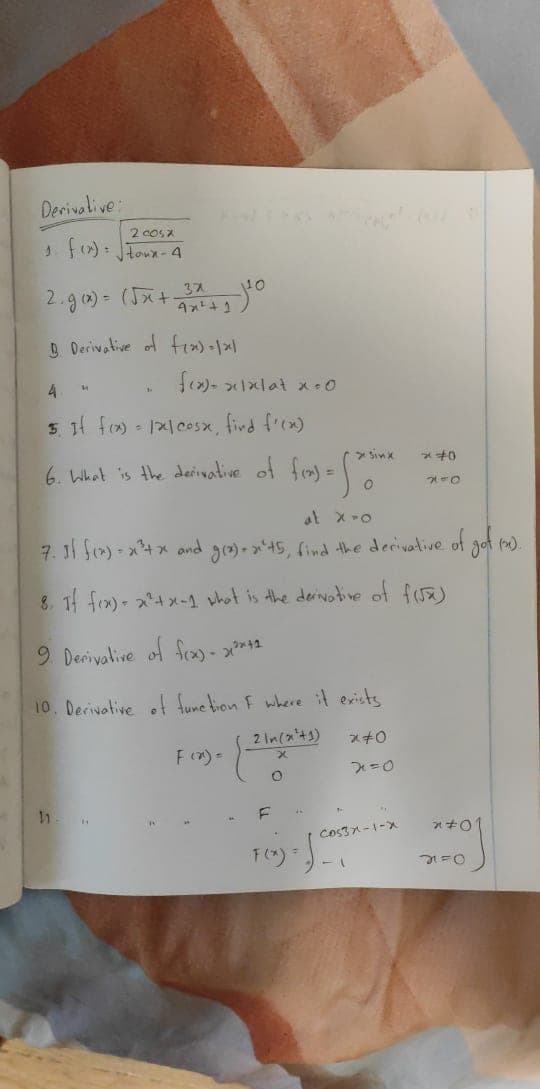 Derivative:
1. f(x) = √(2cosx / tanx-4)
2. g(x) = (√x + 3x / 4x²+1)¹⁰
3. Derivative of f(x) = |x|
4. " " f(x) = x|x| at x=0
5. If f(x) = |x|cosx, find f'(x)
6. What is the derivative of f(x) = { x sinx x≠0
0 x=0
at x=0
7. If f(x) = x³+x and g(x) = x⁴+5, find the derivative of gof (x).
8. If f(x) = x²+x-1 what is the derivative of f(√x)
9. Derivative of f(x) = x²ˣ⁺¹
10. Derivative of function F where it exists
F(x) = { 2ln(x²+1) / x x≠0
0 x=0
11. " " " " F " " "
F(x) = { cos3x-1-x x≠0
-1 x=0 }